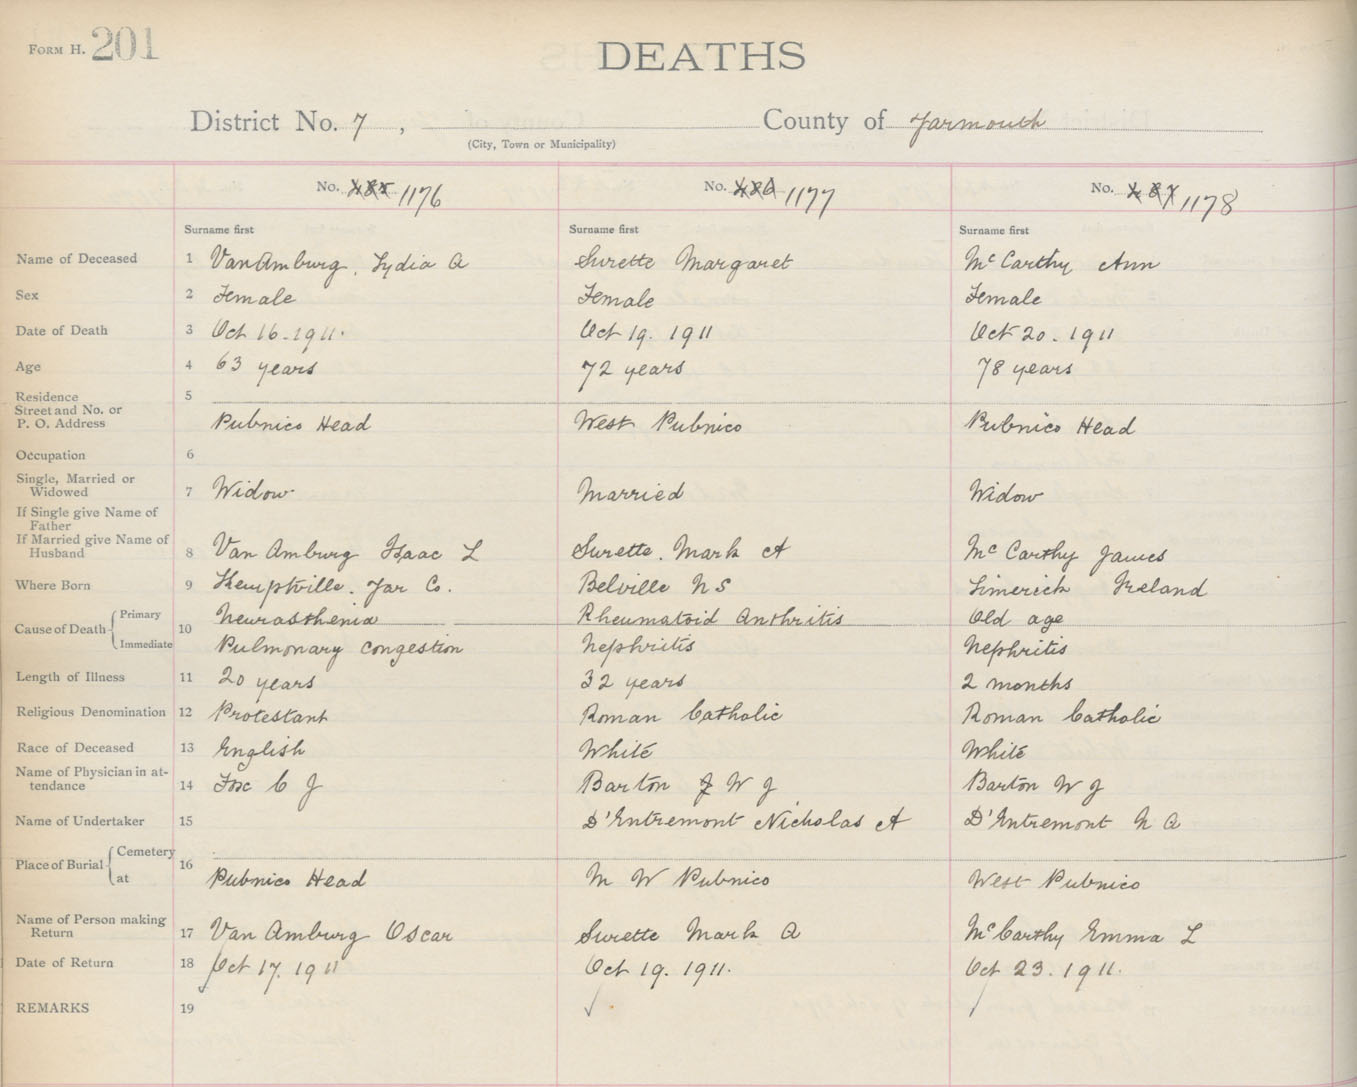 FORM H. 201
DEATHS
District No. 7, County of Yarmouth
(City, Town or Municipality)
No. 485 1176 No. 486 1177 No. 487 1178
Surname first Surname first Surname first
Name of Deceased 1 VanAmburg, Lydia A Surette Margaret McCarthy Ann
Sex 2 Female Female Female
Date of Death 3 Oct 16-1911. Oct 19. 1911 Oct 20. 1911
Age 4 63 years 72 years 78 years
Residence 5
Street and No. or
P. O. Address Pubnico Head West Pubnico Pubnico Head
Occupation 6
Single, Married or
Widowed 7 Widow Married Widow
If Single give Name of
Father
If Married give Name of
Husband 8 Van Amburg Isaac L Surette. Mark A McCarthy James
Where Born 9 Kemptville. Yar Co. Belville NS Limerick Ireland
Cause of Death 10 Primary Neurasthenia Rheumatoid Arthritis Old age
Immediate Pulmonary Congestion Nephritis Nephritis
Length of Illness 11 20 years 32 years 2 months
Religious Denomination 12 Protestant Roman Catholic Roman Catholic
Race of Deceased 13 English White White
Name of Physician in at-
tendance 14 Fox C J Barton J W J Barton W J
Name of Undertaker 15 D'Entremont Nicholas A D'Entremont N A
Place of Burial 16 Cemetery
at Pubnico Head M W Pubnico West Pubnico
Name of Person making
Return 17 Van Amburg Oscar Surette Mark A McCarthy Emma L
Date of Return 18 Oct 17. 1911 Oct 19. 1911. Oct 23. 1911.
REMARKS 19